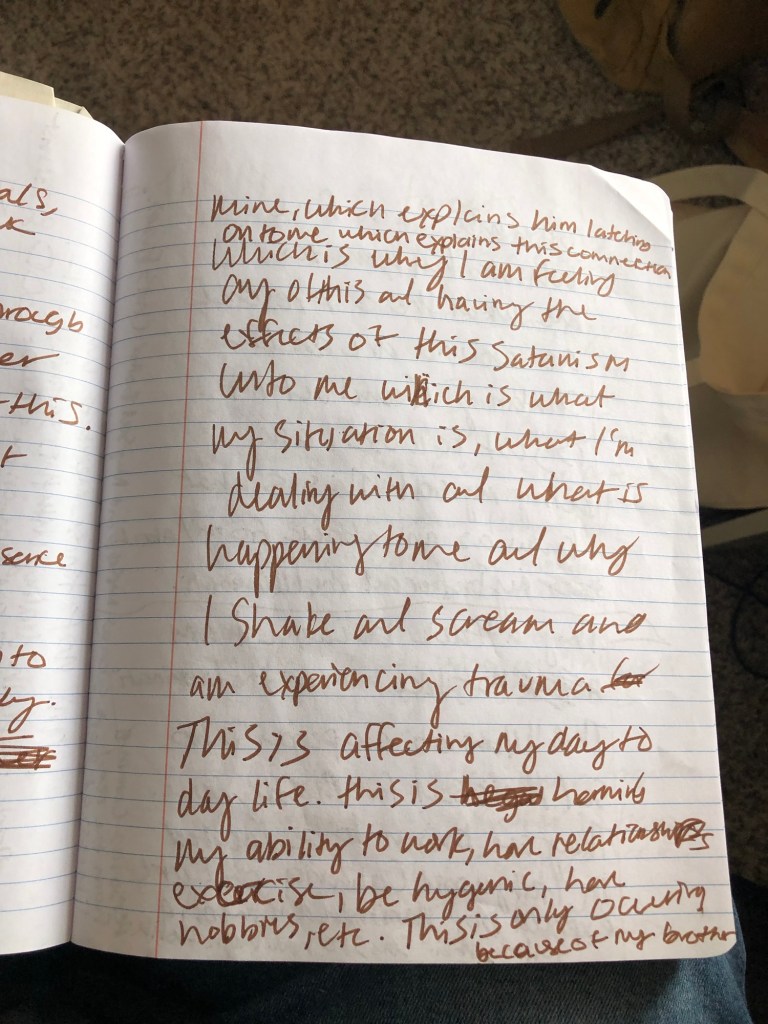 als,
rough
er
this.
sence
to
ly.
mine, which explains him latching
onto me which explains this connection
which is why I am feeling
any of this and having the
effects of this Satanism
unto me which is what
my situation is, what I'm
dealing with and what is
happening to me and why
I shake and scream and
am experiencing trauma
This is affecting my day to
day life. this is
my ability to work, have relationships
exercise, be hygenic, have
hobbies, etc. This is only occuring
because of my brother